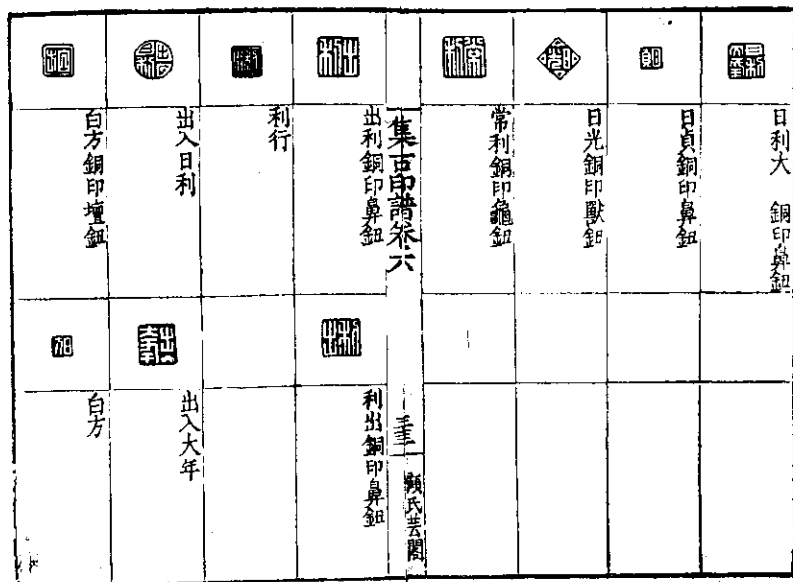 日利大　銅印鼻鈕
日貞銅印鼻鈕
日光銅印獸鈕
常利銅印龜鈕
集古印譜卷六
三
顧氏芸閣
出利銅印鼻鈕
利出銅印鼻鈕
利行
出入日利
出入大年
白方銅印壇鈕
白方